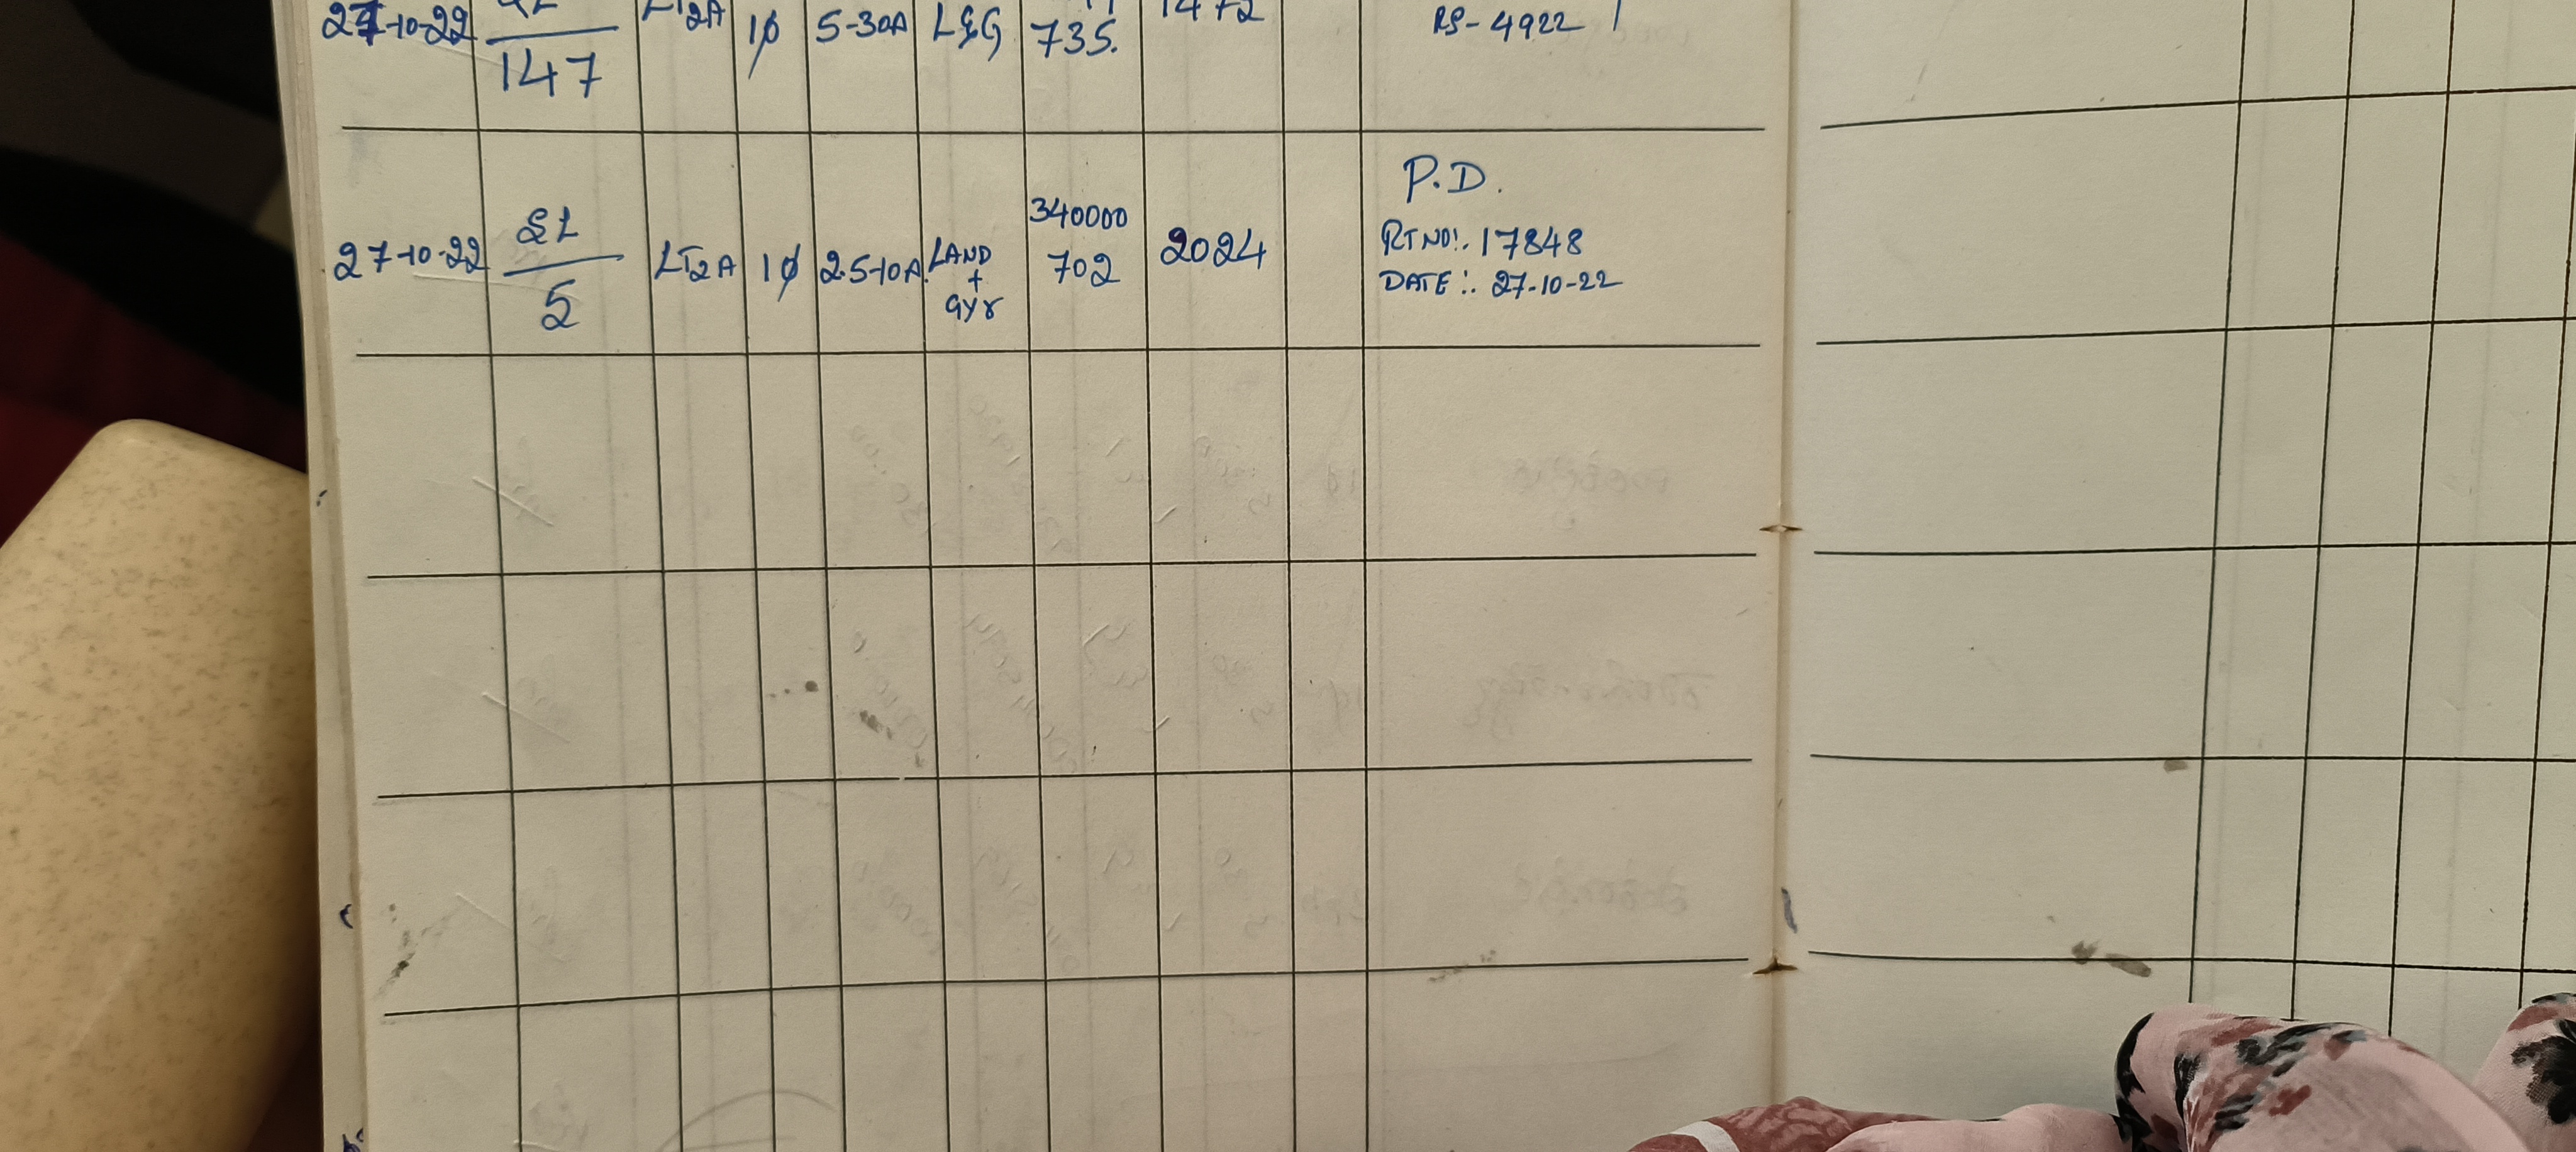 27-10-22 147 LT2A 1ϕ 5-30A L&G 735. 1472 RS-4922
P.D.
27-10-22 SL/5 LT2A 1ϕ 2.5-10A LAND + GYR 340000 702 2024
RTNO:. 17848
DATE:. 27-10-22